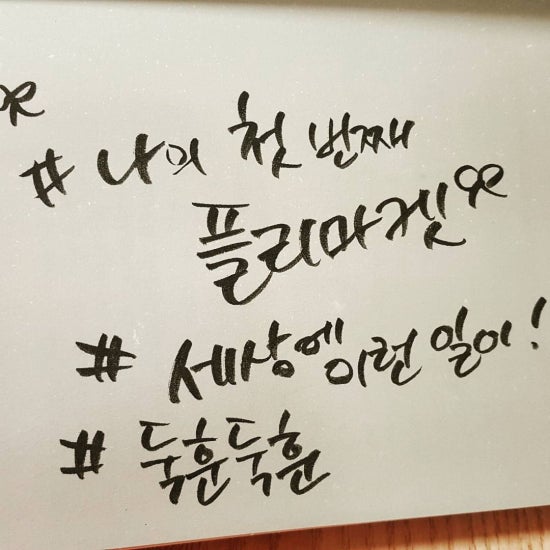 # 나의 첫 번째
플리마켓
# 세상에 이런 일이!
# 둑훈둑훈